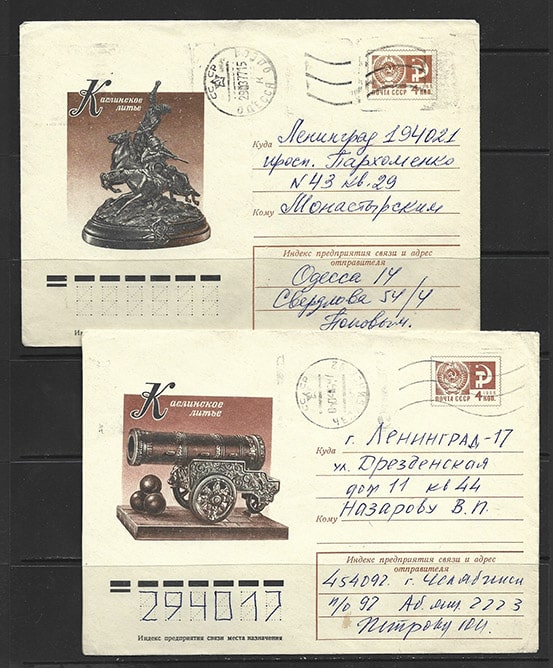 Каслинское
литье
СССР
65000
29037715
К
ОДЕССА
ПОЧТА СССР 4 коп.
Куда Ленинград 194021
просп. Пархоменко
N 43 кв. 29
Кому Монастырским
Индекс предприятия связи и адрес
отправителя
Одесса 14
Свердлова 54/4
Поповым.
Каслинское
литье
СССР
ПОЧТА СССР 4 коп.
г. Ленинград-17
Куда
ул. Дрезденская
дом 11 кв 44
Назарову В.П.
Кому
Индекс предприятия связи и адрес
отправителя
454092. г. Челябинск
п/о 92 Аб. ящ. 2223
Петрову Ю.И.
294017
Индекс предприятия связи места назначения